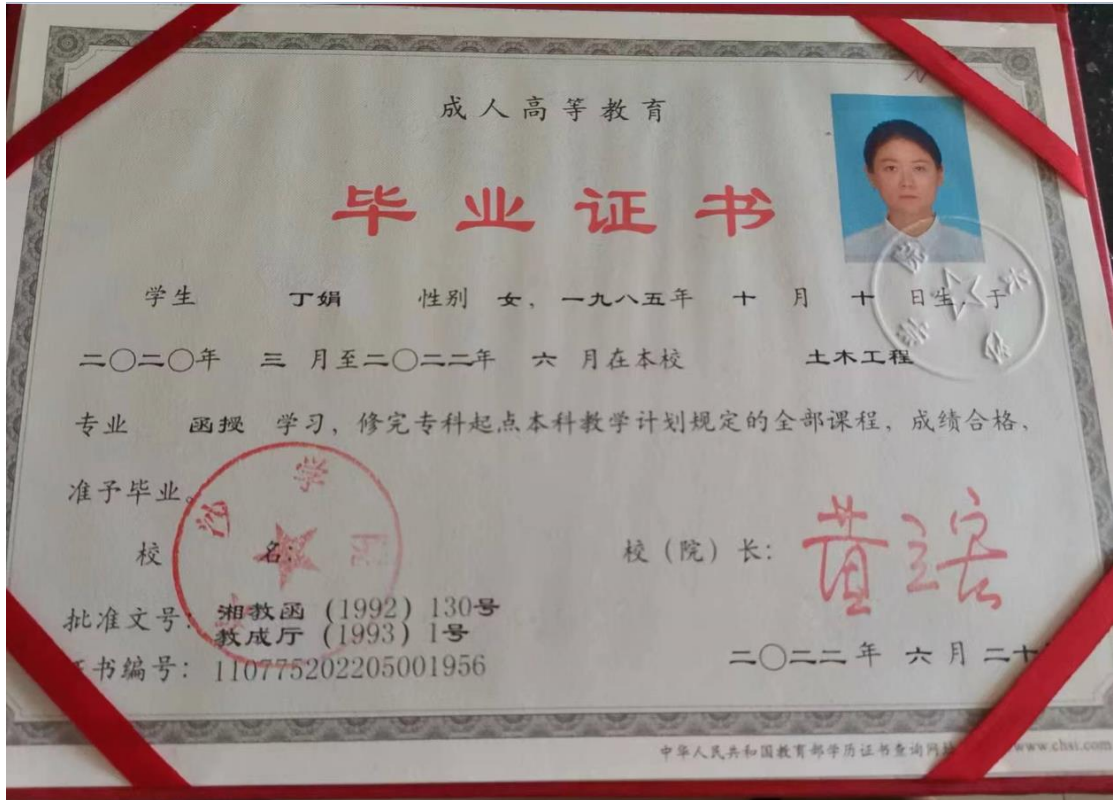 成人高等教育
毕业证书
学生 丁娟 性别 女，一九八五年 十 月 十 日生，于
二〇二〇年 三 月至二〇二二年 六 月在本校 土木工程
专业 函授 学习，修完专科起点本科教学计划规定的全部课程，成绩合格，
准予毕业。
校 名： 校（院）长：
批准文号：湘教函（1992）130号
教成厅（1993）1号
证书编号：110775202205001956
二〇二二年 六 月 二十
中华人民共和国教育部学历证书查询网址 www.chsi.com